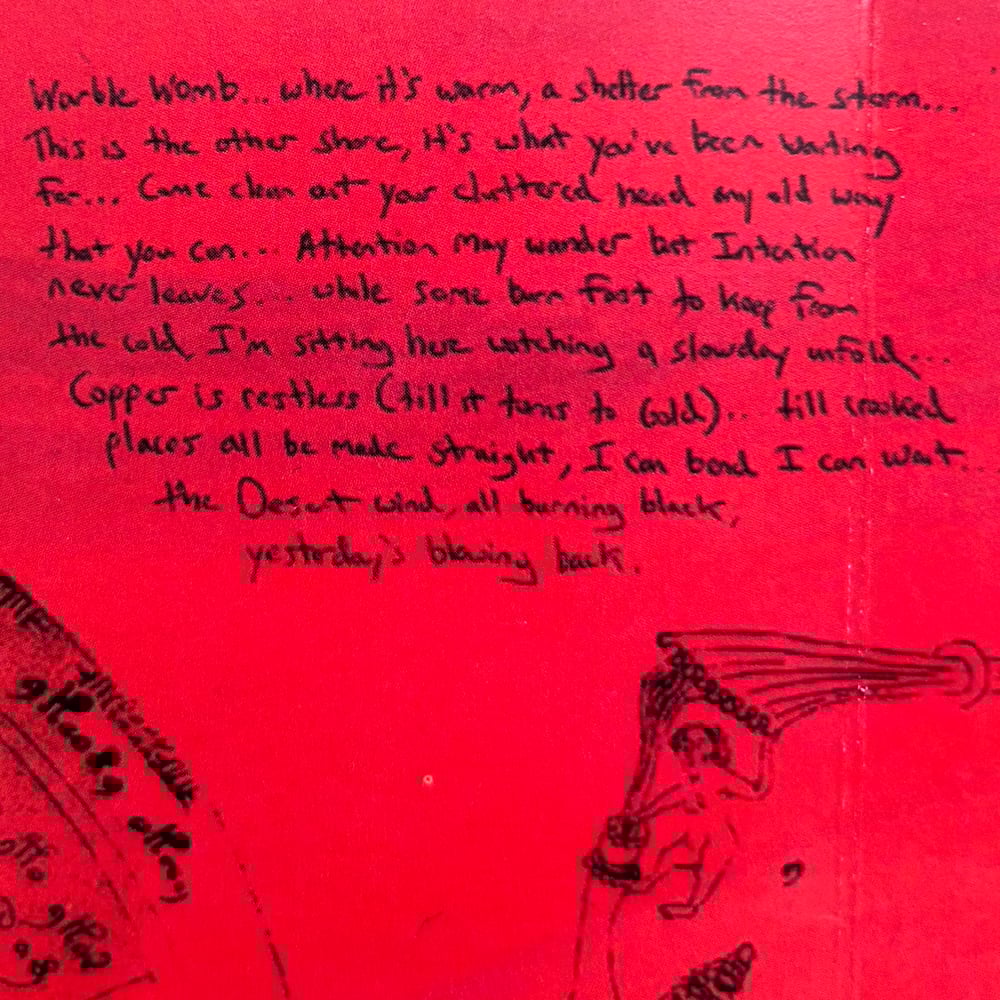 Warble Womb... where it's warm, a shelter from the storm...
This is the other shore, it's what you've been waiting
for... Come clean out your cluttered head any old way
that you can... Attention may wander but Intention
never leaves... while some burn fast to keep from
the cold, I'm sitting here watching a slowday unfold...
Copper is restless (till it turns to Gold)... till crooked
places all be made straight, I can bend I can wait..
the Desert wind, all burning black,
yesterday's blowing back.